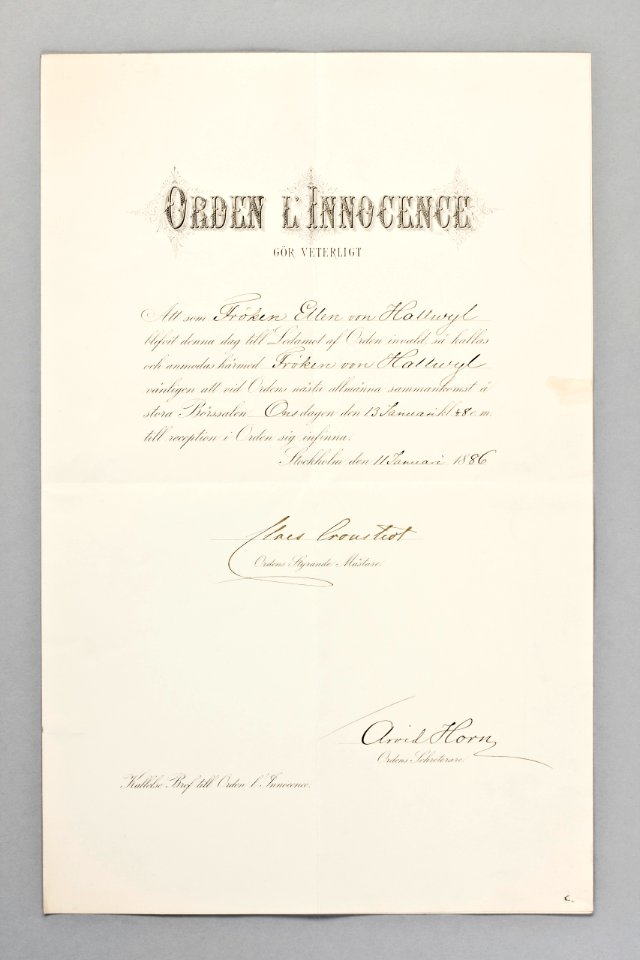 ORDEN L'INNOCENCE
GÖR VETERLIGT
Att som Fröken Ellen von Hallwyl
blifvit denna dag till Ledamot af Orden invald så kallas
och anmodas härmed Fröken von Hallwyl
vänligen att vid Ordens nästa allmänna sammankomst å
stora Börssalen Onsdagen den 13 Januari kl 8 e.m.
till reception i Orden sig infinna.
Stockholm den 11 Januari 1886
Claes Cronstedt
Ordens Styrande Mästare.
Arvid Horn
Ordens Sekreterare.
Kallelse Bref till Orden l'Innocence.